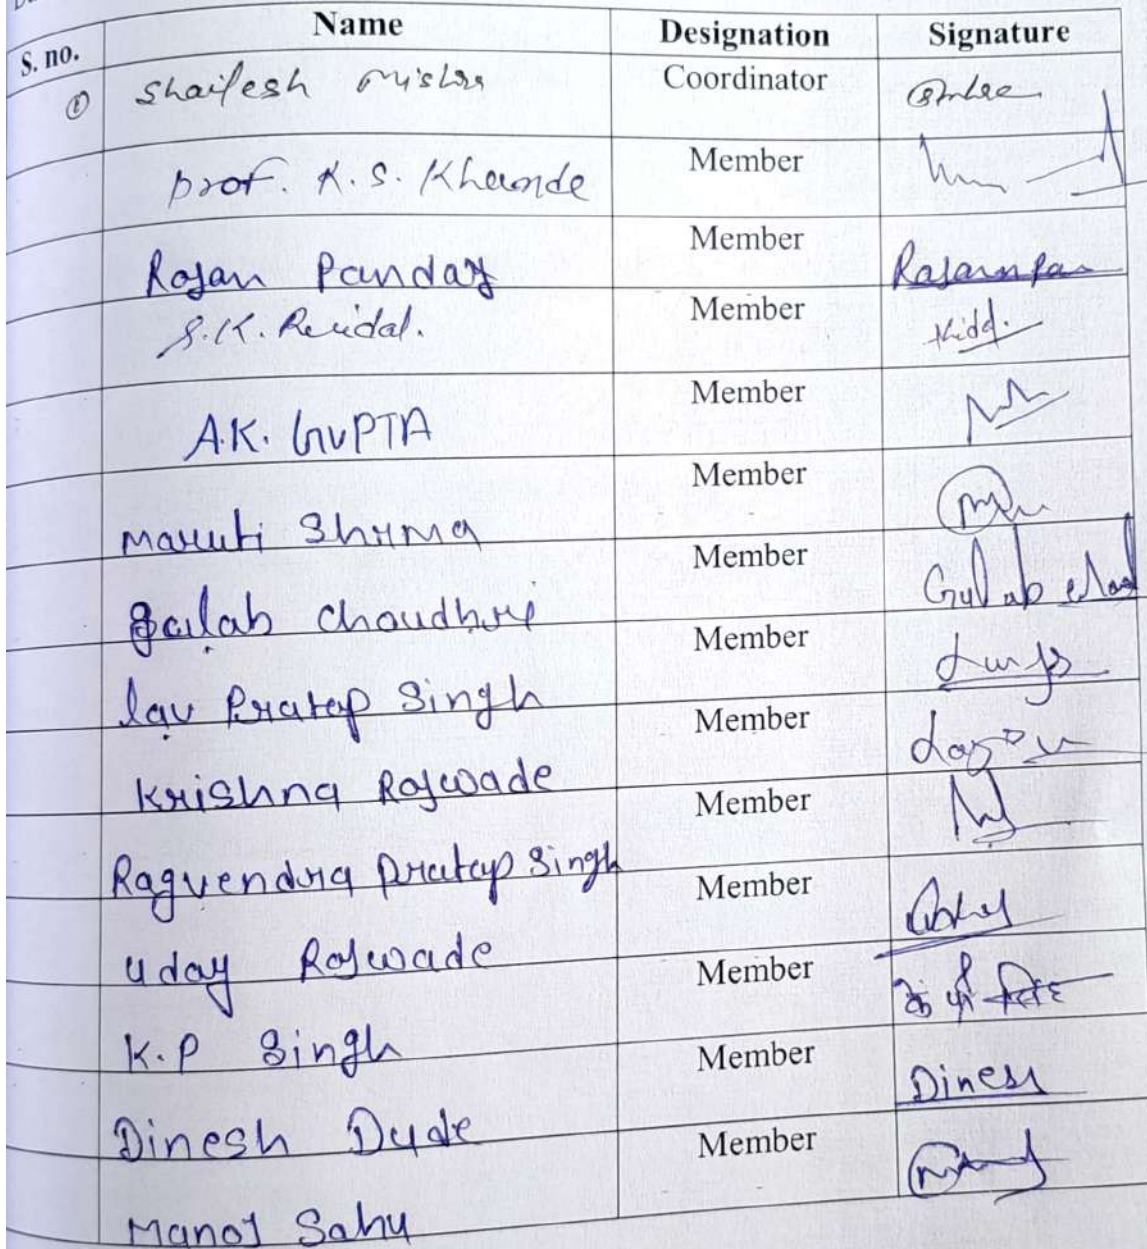 S. no. Name Designation Signature
① Shailesh Mishra Coordinator
Prof. K. S. Khande Member
Rajan Panday Member Rajanpan
S.K. Member
A.K. GUPTA Member
Maruti Shrma Member
Gulab Choudhre Member Gulab
lav Pratap Singh Member
Krishna Rajwade Member
Ragvendra Pratap Singh Member
Uday Rajwade Member
K.P Singh Member के पी सिंह
Dinesh Dude Member Dinesh
Manoj Sahu Member